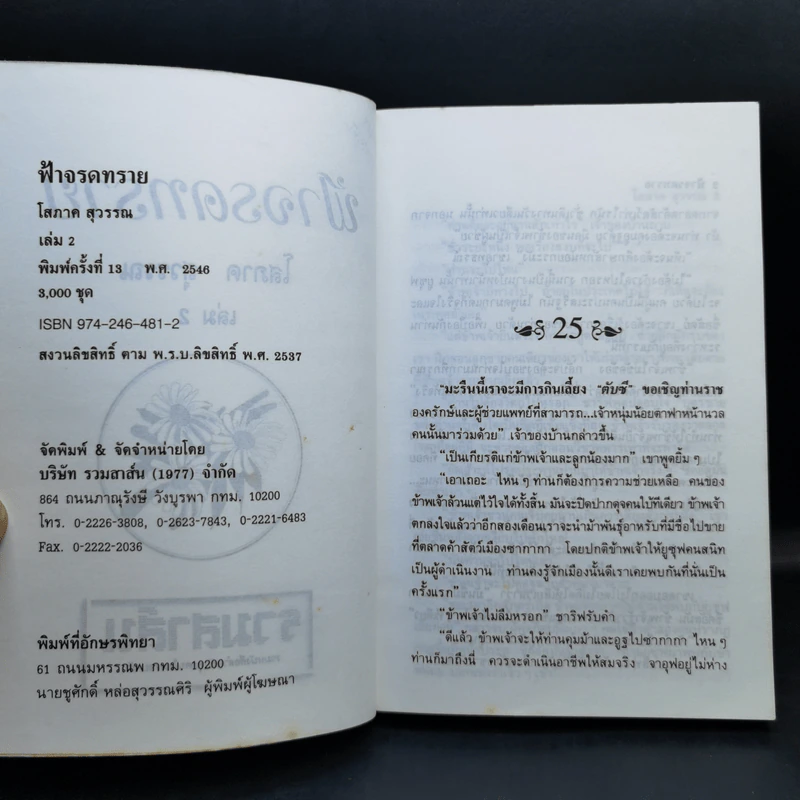 ฟ้าจรดทราย
โสภาค สุวรรณ
เล่ม 2
พิมพ์ครั้งที่ 13 พ.ศ. 2546
3,000 ชุด
ISBN 974-246-481-2
สงวนลิขสิทธิ์ ตาม พ.ร.บ.ลิขสิทธิ์ พ.ศ. 2537
จัดพิมพ์ & จัดจำหน่ายโดย
บริษัท รวมสาส์น (1977) จำกัด
864 ถนนภาณุรังษี วังบูรพา กทม. 10200
โทร. 0-2226-3808, 0-2623-7843, 0-2221-6483
Fax. 0-2222-2036
พิมพ์ที่อักษรพิทยา
61 ถนนมหรรณพ กทม. 10200
นายชูศักดิ์ หล่อสุวรรณศิริ ผู้พิมพ์ผู้โฆษณา
25
"มะรืนนี้เราจะมีการกินเลี้ยง "ตับซี" ขอเชิญท่านราช
องครักษ์และผู้ช่วยแพทย์ที่สามารถ...เจ้าหนุ่มน้อยคาฟาหน้านวล
คนนั้นมาร่วมด้วย" เจ้าของบ้านกล่าวขึ้น
"เป็นเกียรติแก่ข้าพเจ้าและลูกน้องมาก" เขาพูดยิ้ม ๆ
"เอาเถอะ ไหน ๆ ท่านก็ต้องการความช่วยเหลือ คนของ
ข้าพเจ้าล้วนแต่ไว้ใจได้ทั้งสิ้น มันจะปิดปากดุจคนใบ้ทีเดียว ข้าพเจ้า
ตกลงใจแล้วว่าอีกสองเดือนเราจะนำม้าพันธุ์อาหรับที่มีชื่อไปขาย
ที่ตลาดค้าสัตว์เมืองซากากา โดยปกติข้าพเจ้าให้ยูซุฟคนสนิท
เป็นผู้ดำเนินงาน ท่านคงรู้จักเมืองนั้นดีเราเคยพบกันที่นั่นเป็น
ครั้งแรก"
"ข้าพเจ้าไม่ลืมหรอก" ชารีฟรับคำ
"ดีแล้ว ข้าพเจ้าจะให้ท่านคุมม้าและอูฐไปซากากา ไหน ๆ
ท่านก็มาถึงนี่ ควรจะดำเนินอาชีพให้สมจริง จาอุฟอยู่ไม่ห่าง